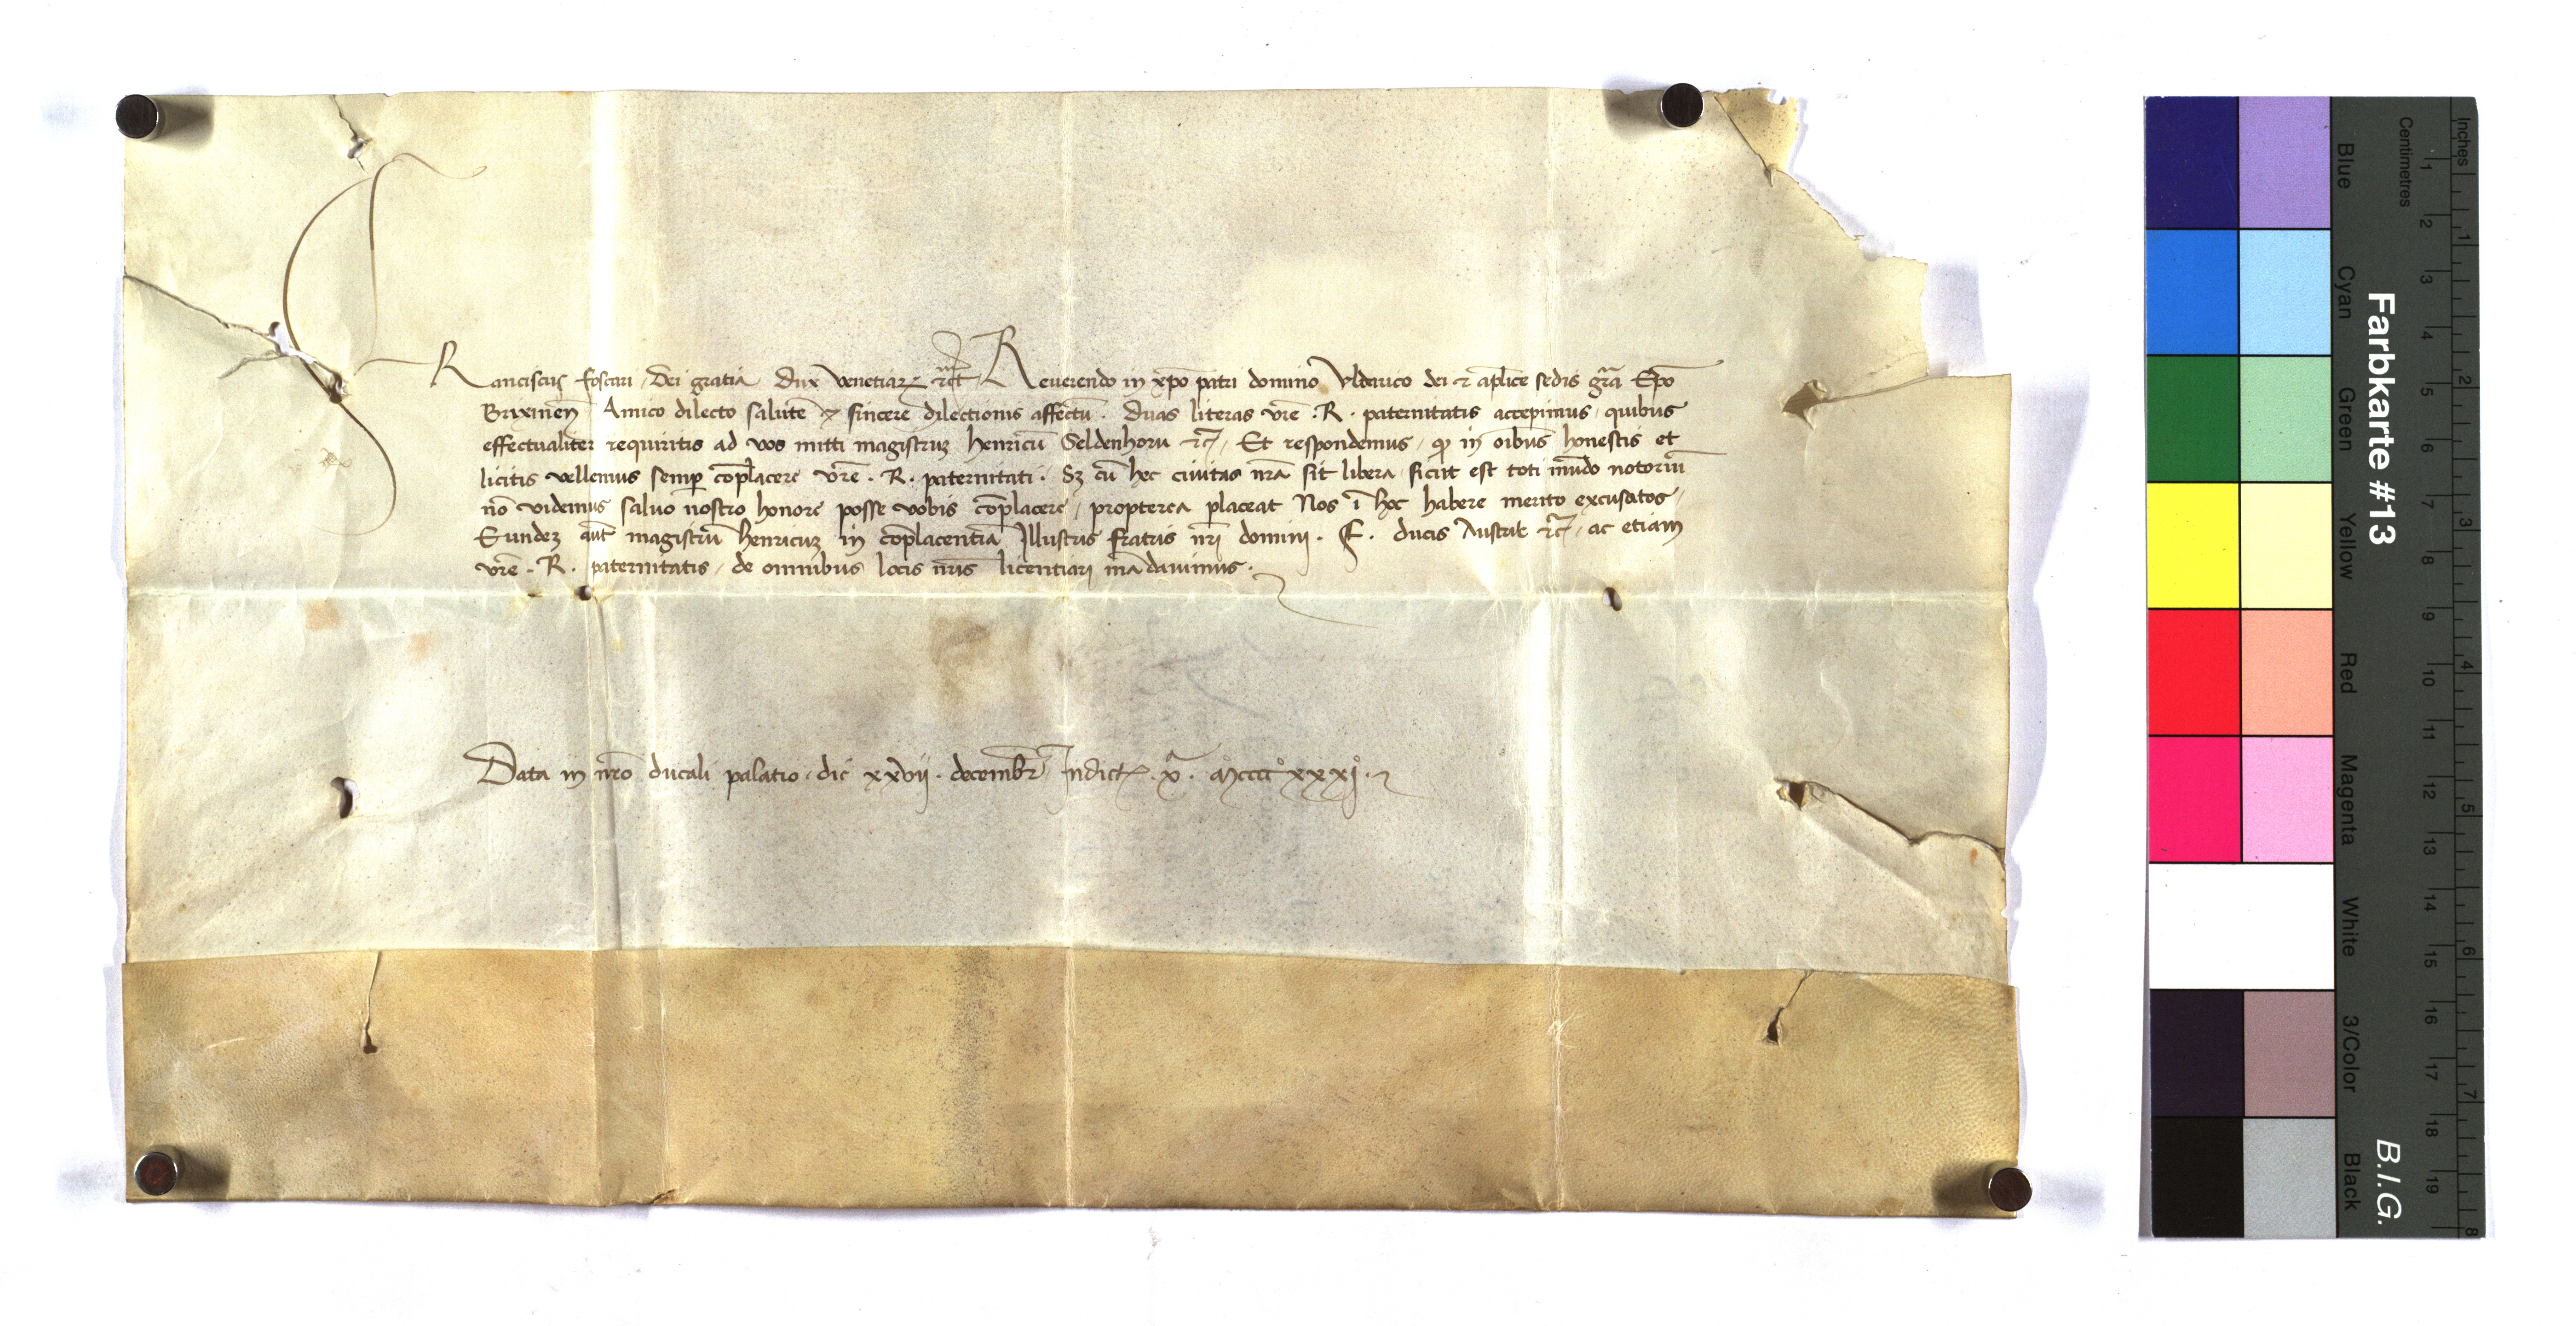 FRanciscus foscari, Dei gratia, Dux Venetiarꝝ etc̃. Reuerendo in xp̃o patri domino Vldarico dei et ap̃lice sedis gr̃a Ep̃o
Brixineñ Amico dilecto salutē et sincere dilectionis affectū. Duas literas vr̃e .R. paternitatis accepimus, quibus
effectualiter requiritis ad vos mitti magistruꝫ henricū Seldenhorn etc̃, Et respondemus, qͩ in oībus honestis et
licitis vellemus semꝑ cōplacere vr̃e .R. paternitati. Sꝫ cū hec ciuitas nr̃a sit libera, sicut est toti mūdo notoriū
nō videmus saluo nostro honore posse vobis cōplacere, propterea placeat Nos ī hoc habere merito excusatos,
Eundeꝫ aūt magistrū henricuꝫ in cōplacentiā Illustris fratris nr̃i domini .F. ducis Austrie etc̃, ac etiam
vr̃e .R. paternitatis, de omnibus locis nr̃is licentiari mādauimus.
Data in nr̃o ducali palatio, die xxvii. decembr̃ Indictōe .xᵃ. Mcccc°xxxj°.
Farbkarte #13
B.I.G.
Inches
Centimetres
1 2 3 4 5 6 7 8 9 10 11 12 13 14 15 16 17 18 19
1 2 3 4 5 6 7 8
Blue
Cyan
Green
Yellow
Red
Magenta
White
3/Color
Black